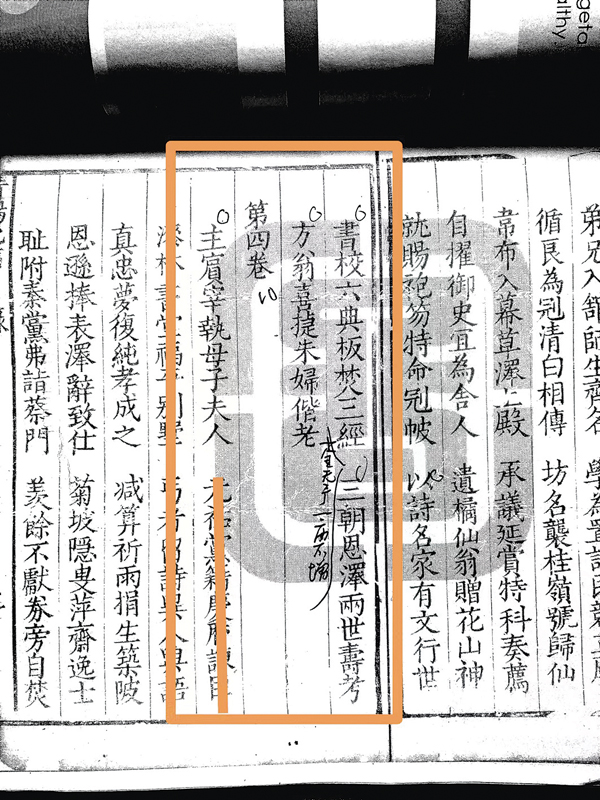 geta
althy.
循良為冠清白相傳 坊名襲桂嶺號歸仙
韋布入幕草澤上殿 承議延賞特科奏薦
自擢御史宜為舍人 遺橘仙翁贈花山神
就賜袍笏特命冠帔 以詩名家有文行世
書校六典板焚三經 三朝恩澤兩世壽考
方翁喜捷朱婦偕老
第四卷
主賓宰執母子夫人 元祐黨籍慶曆諫官
書堂福平別墅
真忠夢復純孝成之 減算祈雨捐生築陂
恩遜捧表澤辭致仕 菊坡隱叟萍齋逸士
恥附秦黨弗詣蔡門 羨餘不獻券旁自焚